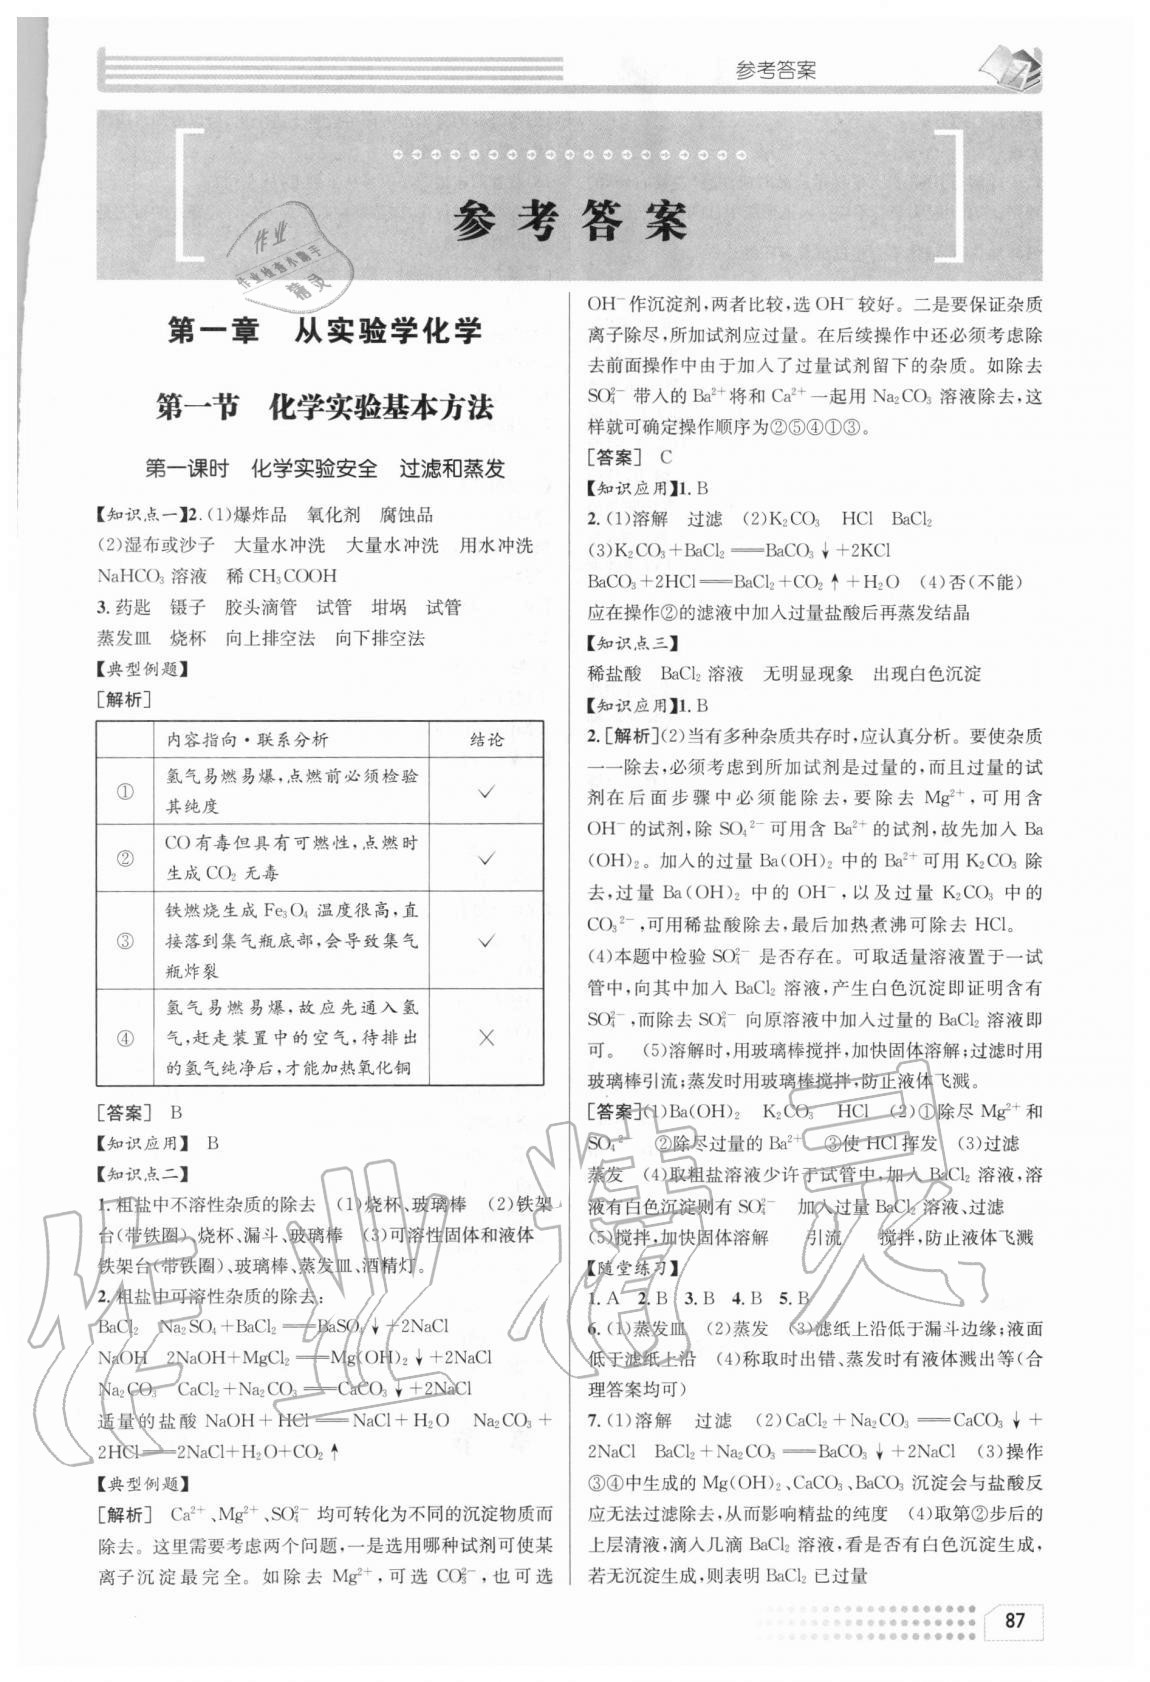 参考答案
参考答案
作业
作业检查小助手
精灵
第一章 从实验学化学
第一节 化学实验基本方法
第一课时 化学实验安全 过滤和蒸发
【知识点一】2.(1)爆炸品 氧化剂 腐蚀品
(2)湿布或沙子 大量水冲洗 大量水冲洗 用水冲洗
NaHCO₃ 溶液 稀 CH₃COOH
3.药匙 镊子 胶头滴管 试管 坩埚 试管
蒸发皿 烧杯 向上排空法 向下排空法
【典型例题】
[解析]
内容指向·联系分析 结论
① 氢气易燃易爆,点燃前必须检验 ✓
其纯度
② CO 有毒但具有可燃性,点燃时 ✓
生成 CO₂ 无毒
③ 铁燃烧生成 Fe₃O₄ 温度很高,直 ✓
接落到集气瓶底部,会导致集气
瓶炸裂
④ 氢气易燃易爆,故应先通入氢 ×
气,赶走装置中的空气,待排出
的氢气纯净后,才能加热氧化铜
[答案] B
【知识应用】 B
【知识点二】
1.粗盐中不溶性杂质的除去 (1)烧杯、玻璃棒 (2)铁架
台(带铁圈)、烧杯、漏斗、玻璃棒 (3)可溶性固体和液体
铁架台(带铁圈)、玻璃棒、蒸发皿、酒精灯。
2.粗盐中可溶性杂质的除去:
BaCl₂ Na₂SO₄+BaCl₂══BaSO₄↓+2NaCl
NaOH 2NaOH+MgCl₂══Mg(OH)₂↓+2NaCl
Na₂CO₃ CaCl₂+Na₂CO₃══CaCO₃↓+2NaCl
适量的盐酸 NaOH+HCl══NaCl+H₂O Na₂CO₃+
2HCl══2NaCl+H₂O+CO₂↑
【典型例题】
[解析] Ca²⁺、Mg²⁺、SO₄²⁻ 均可转化为不同的沉淀物质而
除去。这里需要考虑两个问题,一是选用哪种试剂可使某
离子沉淀最完全。如除去 Mg²⁺,可选 CO₃²⁻,也可选
OH⁻ 作沉淀剂,两者比较,选 OH⁻ 较好。二是要保证杂质
离子除尽,所加试剂应过量。在后续操作中还必须考虑除
去前面操作中由于加入了过量试剂留下的杂质。如除去
SO₄²⁻ 带入的 Ba²⁺将和 Ca²⁺一起用 Na₂CO₃ 溶液除去,这
样就可确定操作顺序为②⑤④①③。
[答案] C
【知识应用】1.B
2.(1)溶解 过滤 (2)K₂CO₃ HCl BaCl₂
(3)K₂CO₃+BaCl₂══BaCO₃↓+2KCl
BaCO₃+2HCl══BaCl₂+CO₂↑+H₂O (4)否(不能)
应在操作②的滤液中加入过量盐酸后再蒸发结晶
【知识点三】
稀盐酸 BaCl₂ 溶液 无明显现象 出现白色沉淀
【知识应用】1.B
2.[解析](2)当有多种杂质共存时,应认真分析。要使杂质
一一除去,必须考虑到所加试剂是过量的,而且过量的试
剂在后面步骤中必须能除去,要除去 Mg²⁺,可用含
OH⁻的试剂,除 SO₄²⁻可用含 Ba²⁺的试剂,故先加入 Ba
(OH)₂。加入的过量 Ba(OH)₂ 中的 Ba²⁺可用 K₂CO₃ 除
去,过量 Ba(OH)₂ 中的 OH⁻,以及过量 K₂CO₃ 中的
CO₃²⁻,可用稀盐酸除去,最后加热煮沸可除去 HCl。
(4)本题中检验 SO₄²⁻ 是否存在。可取适量溶液置于一试
管中,向其中加入 BaCl₂ 溶液,产生白色沉淀即证明含有
SO₄²⁻,而除去 SO₄²⁻ 向原溶液中加入过量的 BaCl₂ 溶液即
可。 (5)溶解时,用玻璃棒搅拌,加快固体溶解;过滤时用
玻璃棒引流;蒸发时用玻璃棒搅拌,防止液体飞溅。
[答案](1)Ba(OH)₂ K₂CO₃ HCl (2)①除尽 Mg²⁺和
SO₄²⁻ ②除尽过量的 Ba²⁺ ③使 HCl 挥发 (3)过滤
蒸发 (4)取粗盐溶液少许于试管中,加入 BaCl₂ 溶液,溶
液有白色沉淀则有 SO₄²⁻ 加入过量 BaCl₂ 溶液、过滤
(5)搅拌,加快固体溶解 引流 搅拌,防止液体飞溅
【随堂练习】
1.A 2.B 3.B 4.B 5.B
6.(1)蒸发皿 (2)蒸发 (3)滤纸上沿低于漏斗边缘;液面
低于滤纸上沿 (4)称取时出错、蒸发时有液体溅出等(合
理答案均可)
7.(1)溶解 过滤 (2)CaCl₂+Na₂CO₃══CaCO₃↓+
2NaCl BaCl₂+Na₂CO₃══BaCO₃↓+2NaCl (3)操作
③④中生成的 Mg(OH)₂、CaCO₃、BaCO₃ 沉淀会与盐酸反
应无法过滤除去,从而影响精盐的纯度 (4)取第②步后的
上层清液,滴入几滴 BaCl₂ 溶液,看是否有白色沉淀生成,
若无沉淀生成,则表明 BaCl₂ 已过量
作业精灵
87